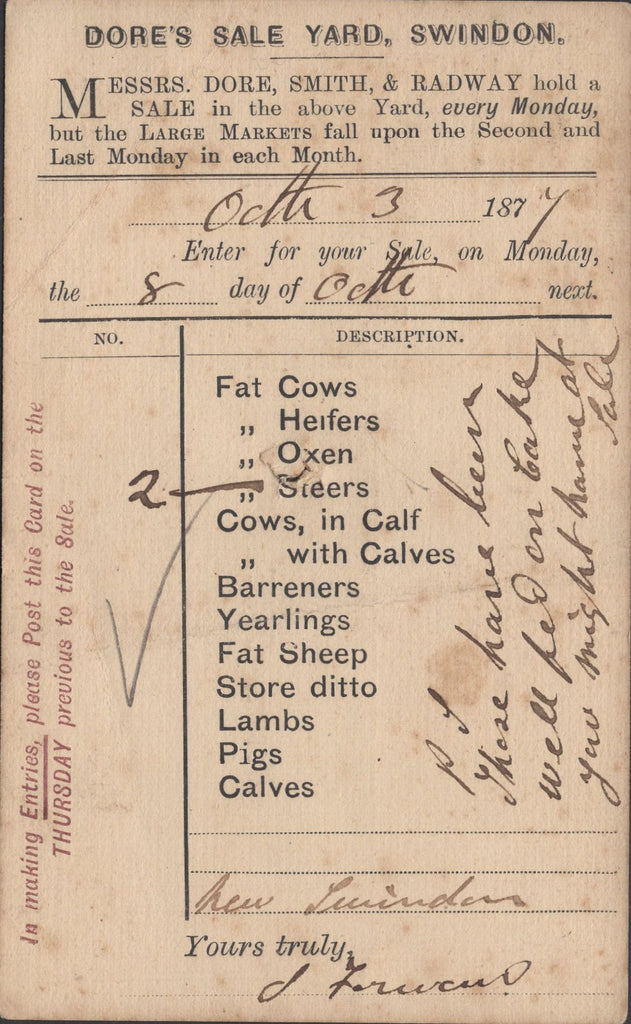 DORE'S SALE YARD, SWINDON.
MESSRS. DORE, SMITH, & RADWAY hold a
SALE in the above Yard, every Monday,
but the LARGE MARKETS fall upon the Second and
Last Monday in each Month.
Octr 3 1877
Enter for your Sale, on Monday,
the 8 day of Octr next.
NO. DESCRIPTION.
Fat Cows
„ Heifers
„ Oxen
2 — „ Steers
Cows, in Calf
„ with Calves
Barreners
Yearlings
Fat Sheep
Store ditto
Lambs
Pigs
Calves
New Swindon
Yours truly,
In making Entries, please Post this Card on the
THURSDAY previous to the Sale.
P S
These have been
well fed on Cake
you might name at
Sale